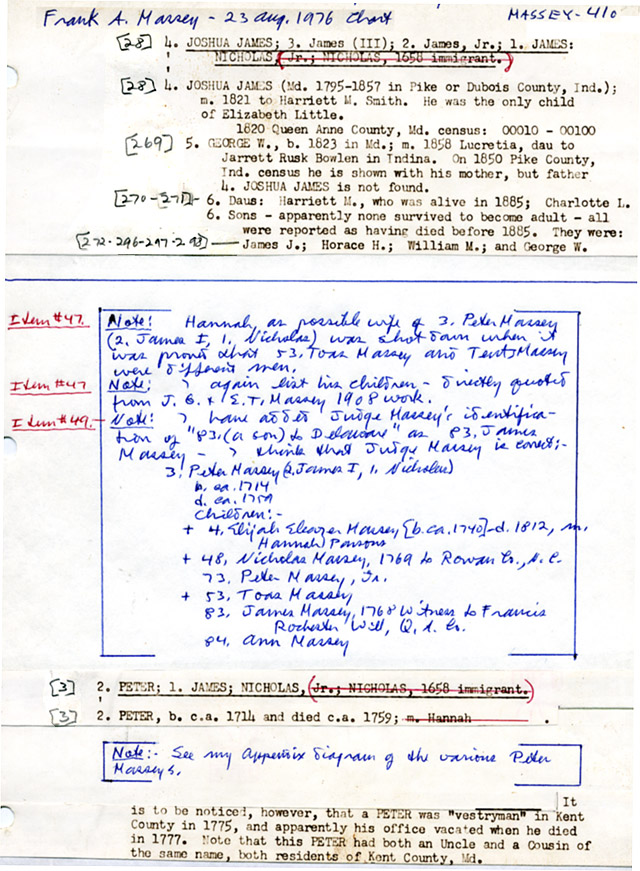 Frank A. Massey - 23 Aug. 1976 Chart MASSEY-410
[28] 4. JOSHUA JAMES; 3. James (III); 2. James, Jr.; 1. JAMES:
NICHOLAS, (Jr.; NICHOLAS, 1658 immigrant.)
[28] 4. JOSHUA JAMES (Md. 1795-1857 in Pike or Dubois County, Ind.);
m. 1821 to Harriett M. Smith. He was the only child
of Elizabeth Little.
1820 Queen Anne County, Md. census: 00010 - 00100
[269] 5. GEORGE W., b. 1823 in Md.; m. 1858 Lucretia, dau to
Jarrett Rusk Bowlen in Indina. On 1850 Pike County,
Ind. census he is shown with his mother, but father
4. JOSHUA JAMES is not found.
[270-271] 6. Daus: Harriett M., who was alive in 1885; Charlotte L.
6. Sons - apparently none survived to become adult - all
were reported as having died before 1885. They were:
[272-296-297-298] James J.; Horace H.; William M.; and George W.
Item #47. Note: Hannah, as possible wife of 3. Peter Massey
(2. James I, 1. Nicholas) was shot down when it
was proved that 53. Toas Massey and Massey
were different men.
Item #47 Note: I again list his children - directly quoted
from J. G. & E. T. Massey 1908 work.
Item #49. Note: I have added Judge Massey's identifica-
tion of "83. (a son) to Delaware" as 83. James
Massey - I think that Judge Massey is correct:-
3. Peter Massey (2. James I, 1. Nicholas)
b. ca. 1714
d. ca. 1759
Children:-
+ 4. Elijah Eleazer Massey, [b. ca. 1740]-d. 1812, m.
Hannah Parsons
+ 48. Nicholas Massey, 1769 to Rowan Co., N.C.
73. Peter Massey, Jr.
+ 53. Toas Massey
83. James Massey, 1768 Witness to Francis
Rochester Will, Q. A. Co.
84. Ann Massey
[3] 2. PETER; 1. JAMES; NICHOLAS, (Jr.; NICHOLAS, 1658 immigrant.)
[3] 2. PETER, b. c.a. 1714 and died c.a. 1759; m. Hannah .
Note:- See my Appendix diagram of the various Peter
Masseys.
It
is to be noticed, however, that a PETER was "vestryman" in Kent
County in 1775, and apparently his office vacated when he died
in 1777. Note that this PETER had both an Uncle and a Cousin of
the same name, both residents of Kent County, Md.